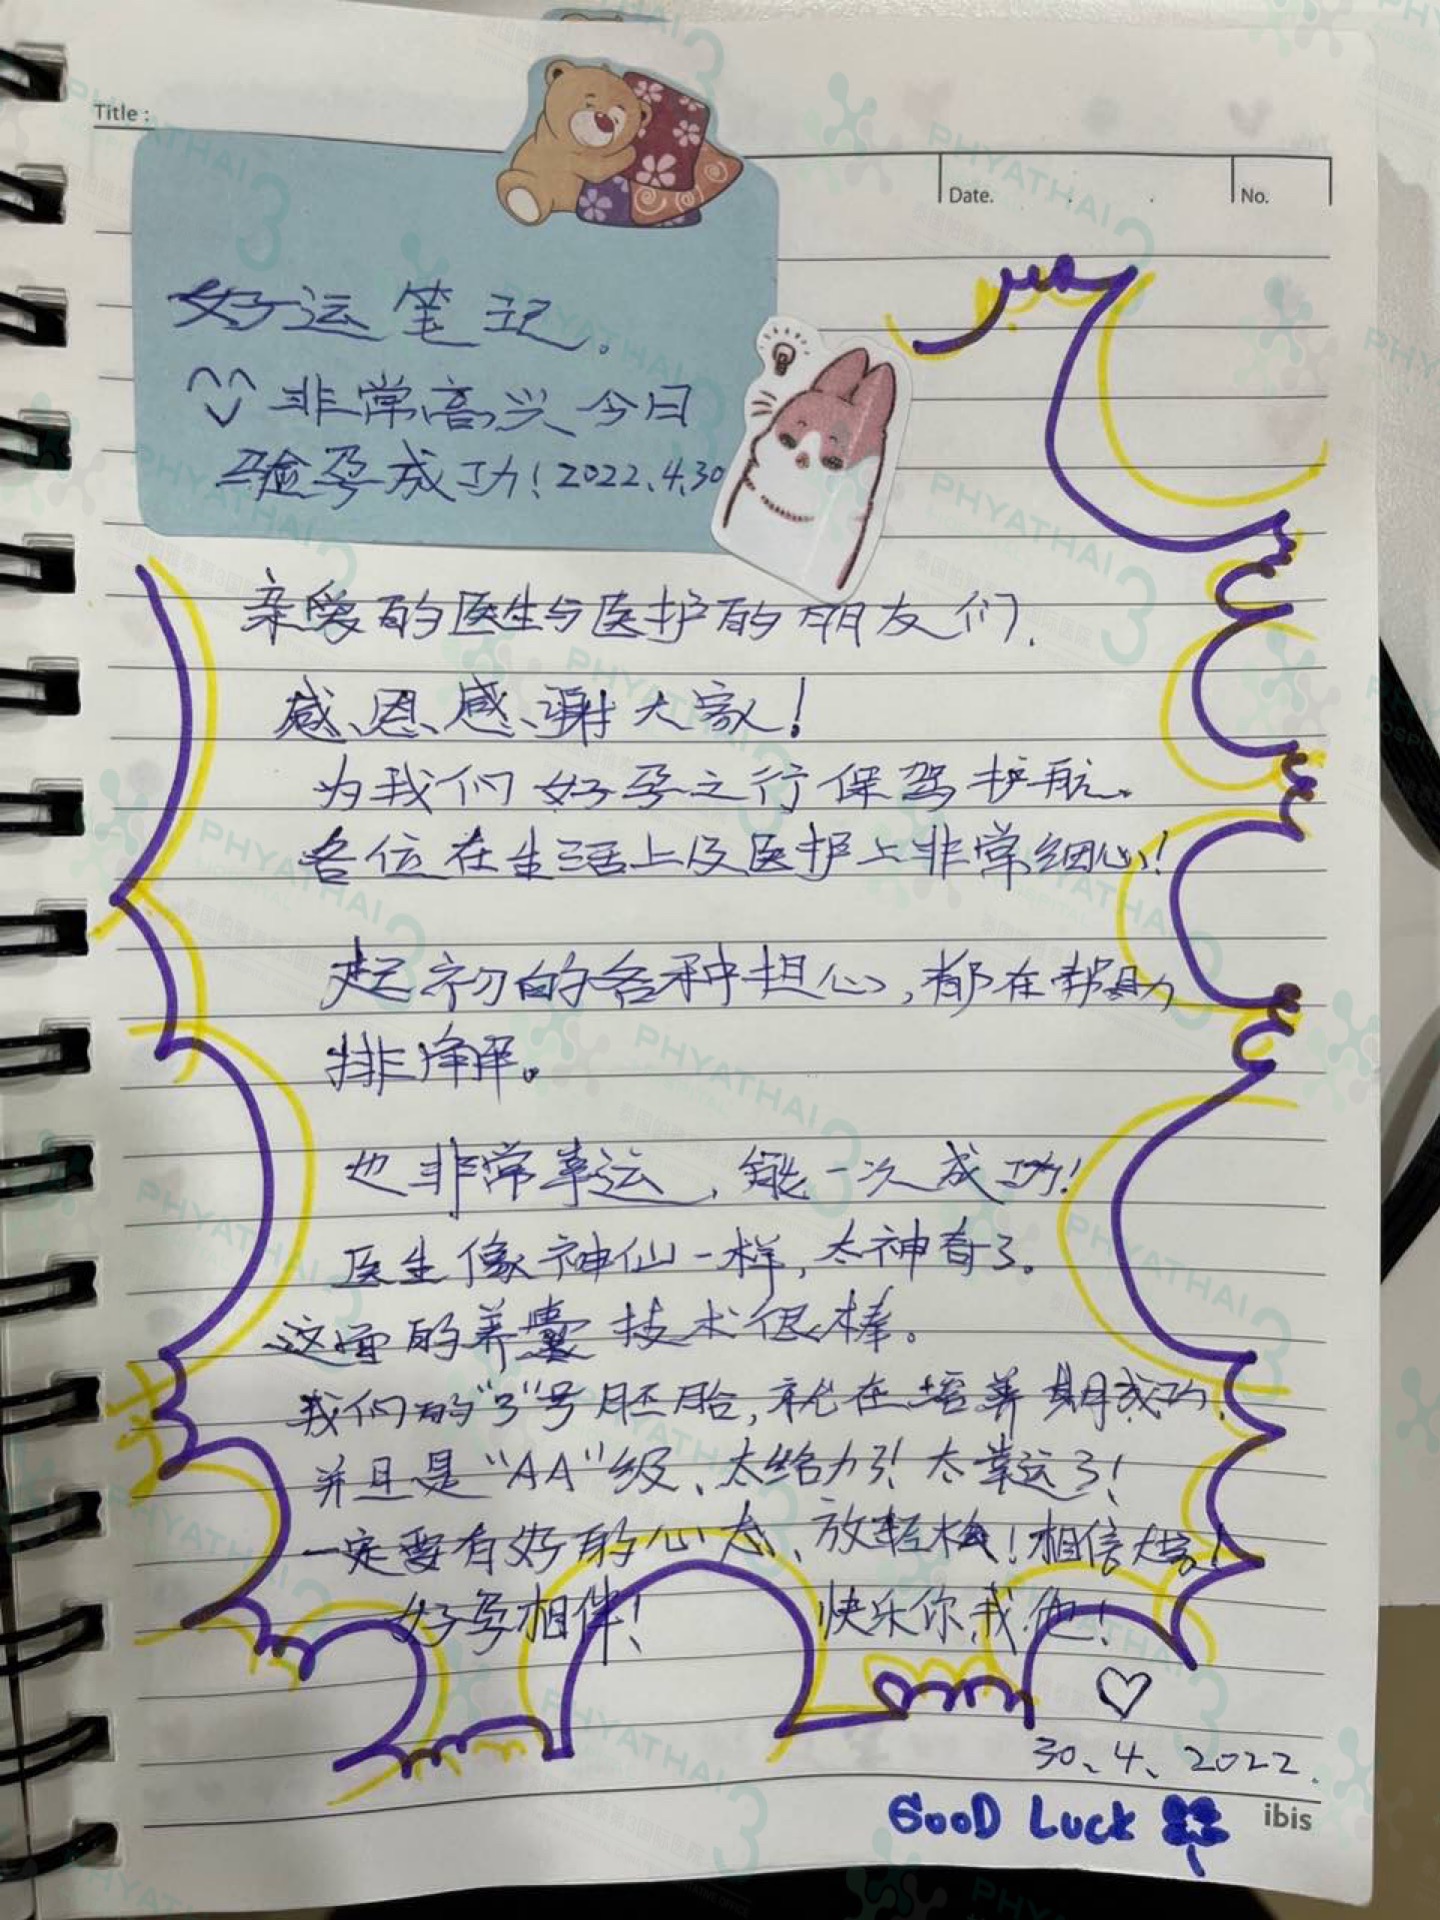 Title :
Date.
No.
好运笔记。
非常高兴今日
验孕成功！2022.4.30
亲爱的医生与医护的朋友们.
感恩感谢大家！
为我们好孕之行保驾护航。
各位在生活上及医护上非常细心！
起初的各种担心，都在帮助
排解。
也非常幸运，能一次成功！
医生像神仙一样，太神奇了。
这里的养囊技术很棒。
我们的"3"号胚胎，就在培养期成功，
并且是"AA"级、太给力了！太幸运了！
一定要有好的心态、放轻松！相信大家！
好孕相伴！ 快乐你我他！
30、4、2022.
GOOD LUCK
ibis
PHYATHAI 3
HOSPITAL